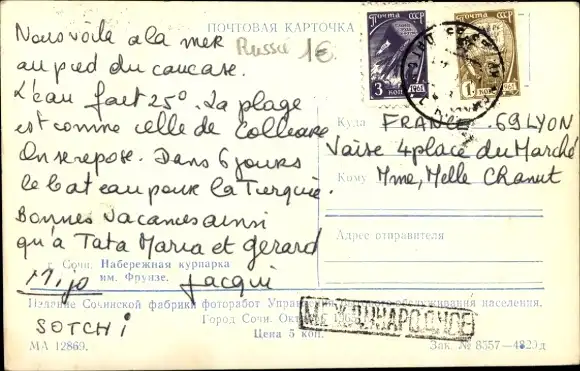 ПОЧТОВАЯ КАРТОЧКА
Nous voilà à la mer
au pied du caucase.
L'eau fait 25° La plage
est comme celle de Collioure
On se repose. Dans 6 jours
le bateau pour la Turquie.
Bonnes vacances ainsi
qu'à Tata Maria et gérard
Mijo Jacqui
SOTCHI
Russie 1€
ПОЧТА СССР
3 КОП
1961
ПОЧТА СССР
1 КОП
1961
Куда FRANCE 69 LYON
Vaise 4 place du Marché
Кому Mme, Melle Chanut
Адрес отправителя
г. Сочи. Набережная курпарка
им. Фрунзе.
Издание Сочинской фабрики фоторабот Управ обслуживания населения.
Город Сочи.
Цена 5 коп.
МА 12869.
Зак. № 8357—4829д
МЕЖДУНАРОДНОЕ